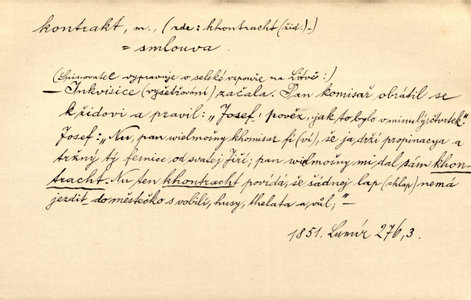 kontrakt, m., (zde: khontracht (žid.).-)
= smlouva.
(Spisovatel vypravuje o selské vzpouře na Litvě:)
— Inkvisice (vyšetřování) začala. Pan komisař obrátil se
k židovi a pravil: „Josef, pověz, jak to bylo v minulý čtvrtek"
Josef: „Nu, pan wielmožny khomisar fi (ví), še ja drží propinacya a
tržný tý fernice, od svatej Jiří; pan wielmožny mi dal sám khon-
tracht. Nu ten khontracht povídá, še šádnej lap (chlap) nemá
jezdit do městečko s vobilí, husy, thelata a vůl," —
1851. Lumír 276, 3.